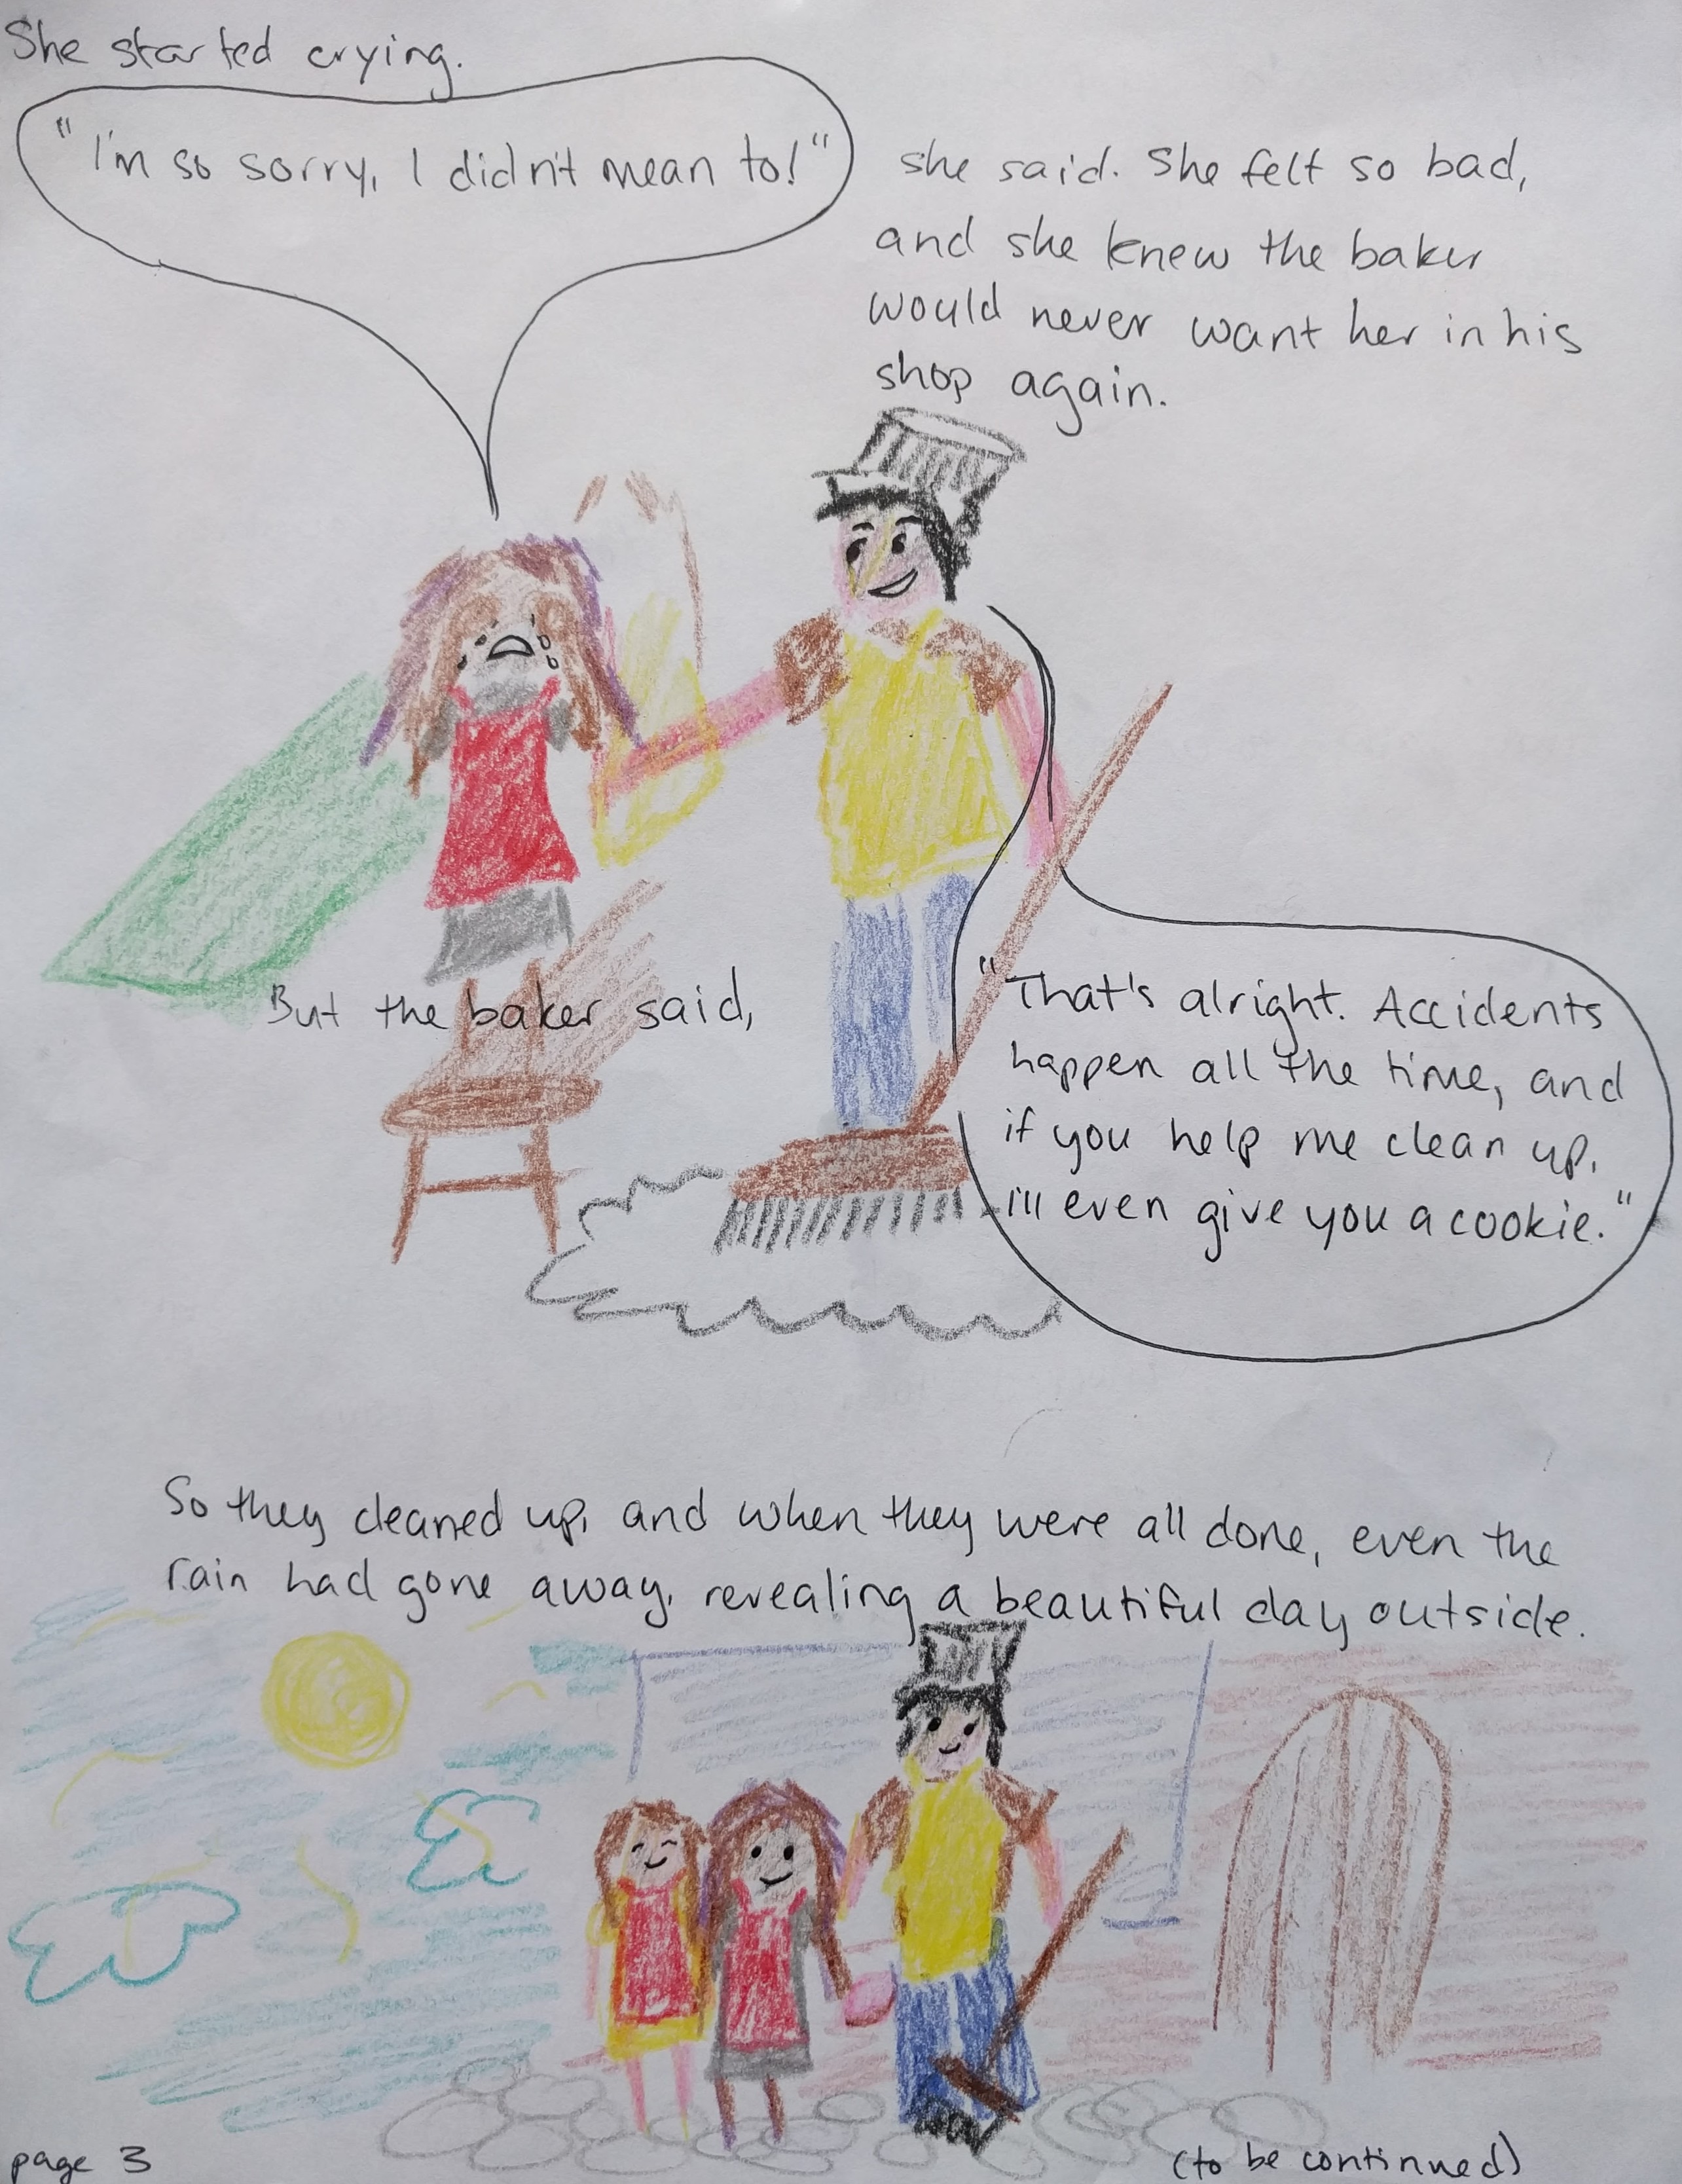 She started crying.
"I'm so sorry, I didn't mean to!"
she said. She felt so bad,
and she knew the baker
would never want her in his
shop again.
But the baker said,
"That's alright. Accidents
happen all the time, and
if you help me clean up,
I'll even give you a cookie."
So they cleaned up, and when they were all done, even the
rain had gone away, revealing a beautiful day outside.
page 3
(to be continued)